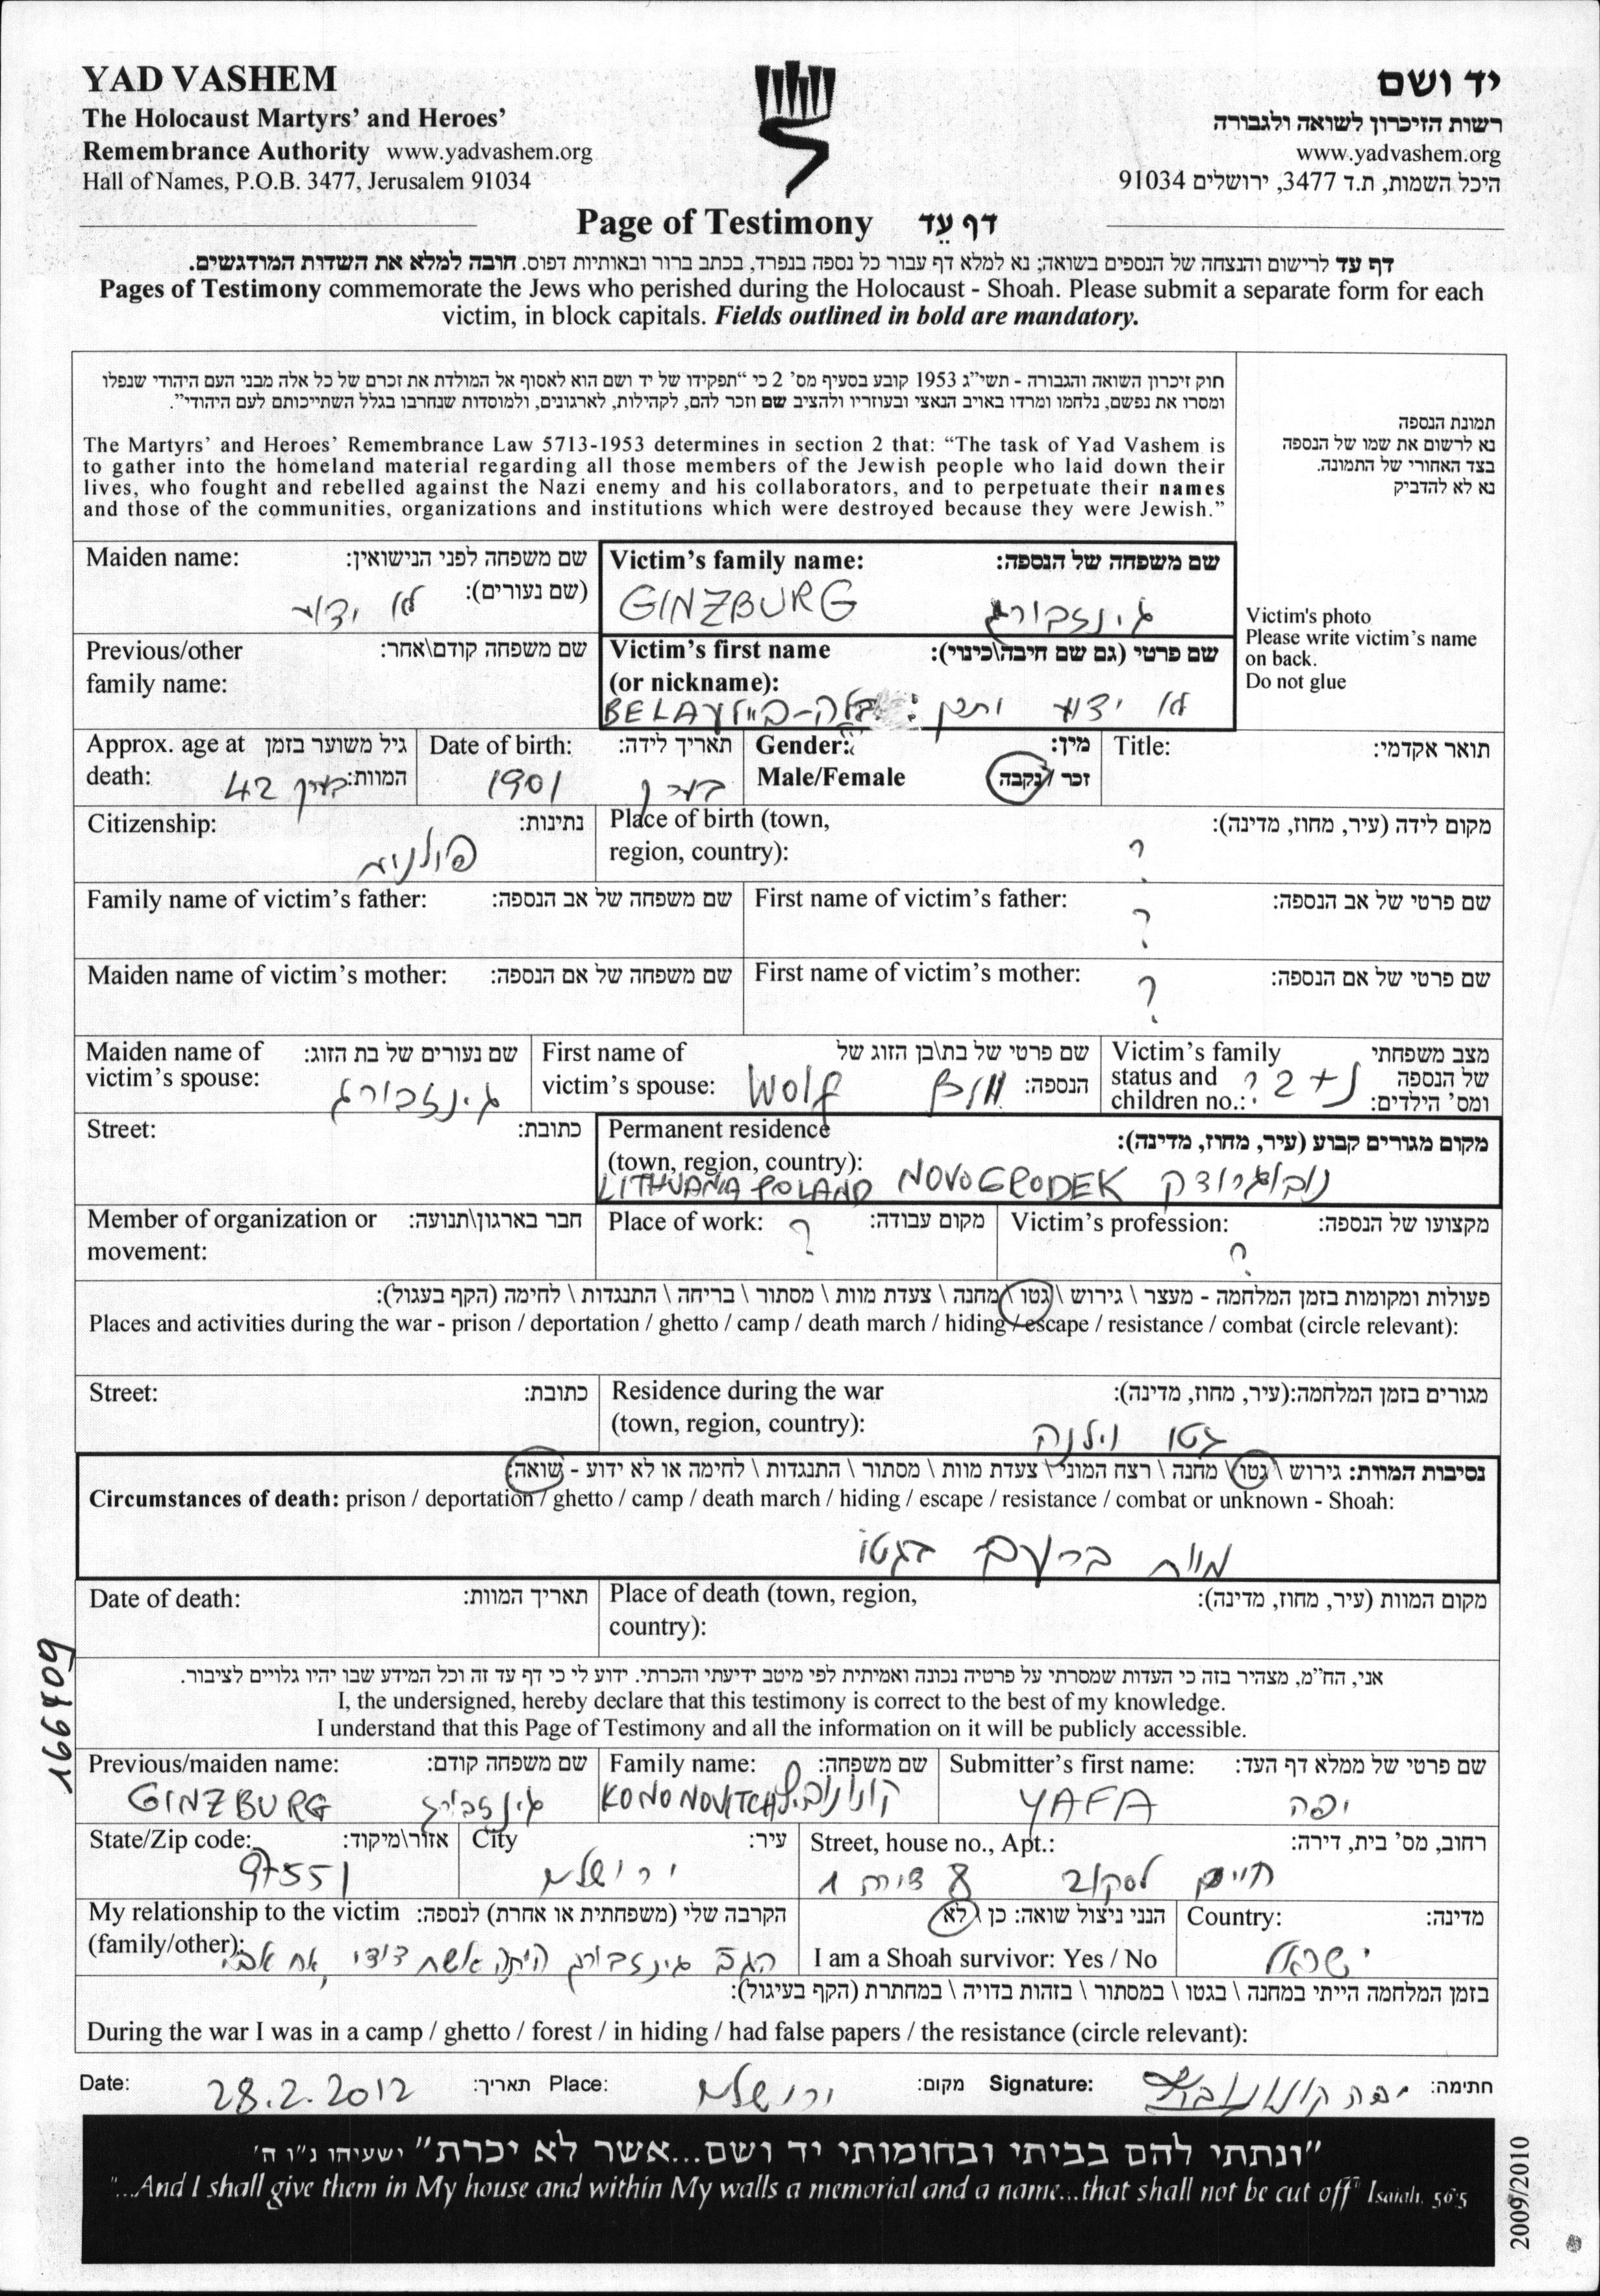 YAD VASHEM
The Holocaust Martyrs' and Heroes'
Remembrance Authority www.yadvashem.org
Hall of Names, P.O.B. 3477, Jerusalem 91034
יד ושם
רשות הזיכרון לשואה ולגבורה
www.yadvashem.org
היכל השמות, ת.ד 3477, ירושלים 91034
Page of Testimony דף עֵד
דף עד לרישום והנצחה של הנספים בשואה; נא למלא דף עבור כל נספה בנפרד, בכתב ברור ובאותיות דפוס. חובה למלא את השדות המודגשים.
Pages of Testimony commemorate the Jews who perished during the Holocaust - Shoah. Please submit a separate form for each
victim, in block capitals. Fields outlined in bold are mandatory.
חוק זיכרון השואה והגבורה - תשי"ג 1953 קובע בסעיף מס' 2 כי "תפקידו של יד ושם הוא לאסוף אל המולדת את זכרם של כל אלה מבני העם היהודי שנפלו
ומסרו את נפשם, נלחמו ומרדו באויב הנאצי ובעוזריו ולהציב שם וזכר להם, לקהילות, לארגונים, ולמוסדות שנחרבו בגלל השתייכותם לעם היהודי".
The Martyrs' and Heroes' Remembrance Law 5713-1953 determines in section 2 that: "The task of Yad Vashem is
to gather into the homeland material regarding all those members of the Jewish people who laid down their
lives, who fought and rebelled against the Nazi enemy and his collaborators, and to perpetuate their names
and those of the communities, organizations and institutions which were destroyed because they were Jewish."
תמונת הנספה
נא לרשום את שמו של הנספה
בצד האחורי של התמונה.
נא לא להדביק
Victim's photo
Please write victim's name
on back.
Do not glue
Maiden name: שם משפחה לפני הנישואין:
(שם נעורים): לא ידוע
Victim's family name: שם משפחה של הנספה:
GINZBURG גינזבורג
Previous/other שם משפחה קודם\אחר:
family name:
Victim's first name שם פרטי (גם שם חיבה\כינוי):
(or nickname):
BELA לא ידוע ותכן : בלה-ביילע
Approx. age at גיל משוער בזמן
death: המוות: בערך 42
Date of birth: תאריך לידה:
בערך 1901
Gender: מין:
Male/Female זכר / נקבה
Title: תואר אקדמי:
Citizenship: נתינות:
פולניה
Place of birth (town, מקום לידה (עיר, מחוז, מדינה):
region, country): ?
Family name of victim's father: שם משפחה של אב הנספה:
First name of victim's father: שם פרטי של אב הנספה:
?
Maiden name of victim's mother: שם משפחה של אם הנספה:
First name of victim's mother: שם פרטי של אם הנספה:
?
Maiden name of שם נעורים של בת הזוג:
victim's spouse: גינזבורג
First name of שם פרטי של בת\בן הזוג של
victim's spouse: הנספה: Wolf
Victim's family מצב משפחתי
status and של הנספה
children no.: ומס' הילדים: נ+2 ?
Street: כתובת:
Permanent residence מקום מגורים קבוע (עיר, מחוז, מדינה):
(town, region, country):
LITHUANIA POLAND NOVOGRODEK נובוגרודק
Member of organization or חבר בארגון\תנועה:
movement:
Place of work: מקום עבודה:
?
Victim's profession: מקצועו של הנספה:
?
פעולות ומקומות בזמן המלחמה - מעצר \ גירוש \ גטו \ מחנה \ צעדת מוות \ מסתור \ בריחה \ התנגדות \ לחימה (הקף בעגול):
Places and activities during the war - prison / deportation / ghetto / camp / death march / hiding / escape / resistance / combat (circle relevant):
Street: כתובת:
Residence during the war מגורים בזמן המלחמה:(עיר, מחוז, מדינה):
(town, region, country): גטו וילנה
נסיבות המוות: גירוש \ גטו \ מחנה \ רצח המוני \ צעדת מוות \ מסתור \ התנגדות \ לחימה או לא ידוע - שואה:
Circumstances of death: prison / deportation / ghetto / camp / death march / hiding / escape / resistance / combat or unknown - Shoah:
מוות ברעב בגטו
Date of death: תאריך המוות:
Place of death (town, region, מקום המוות (עיר, מחוז, מדינה):
country):
166409
אני, הח"מ, מצהיר בזה כי העדות שמסרתי על פרטיה נכונה ואמיתית לפי מיטב ידיעתי והכרתי. ידוע לי כי דף עד זה וכל המידע שבו יהיו גלויים לציבור.
I, the undersigned, hereby declare that this testimony is correct to the best of my knowledge.
I understand that this Page of Testimony and all the information on it will be publicly accessible.
Previous/maiden name: שם משפחה קודם:
GINZBURG גינזבורג
Family name: שם משפחה:
KONONOVITCH קונונוביץ
Submitter's first name: שם פרטי של ממלא דף העד:
YAFA יפה
State/Zip code: אזור\מיקוד:
97551
City עיר:
ירושלים
Street, house no., Apt.: רחוב, מס' בית, דירה:
חיים לסקוב 8 דירה 1
My relationship to the victim הקרבה שלי (משפחתית או אחרת) לנספה:
(family/other): הגב גינזבורג היתה אשת דודי, אח אבי
הנני ניצול שואה: כן \ לא
I am a Shoah survivor: Yes / No
Country: מדינה:
ישראל
בזמן המלחמה הייתי במחנה \ בגטו \ במסתור \ בזהות בדויה \ במחתרת (הקף בעיגול):
During the war I was in a camp / ghetto / forest / in hiding / had false papers / the resistance (circle relevant):
Date: 28.2.2012 תאריך: Place: ירושלים מקום: Signature: יפה קונונוביץ חתימה:
"ונתתי להם בביתי ובחומותי יד ושם...אשר לא יכרת" ישעיהו נ"ו ה'
"...And I shall give them in My house and within My walls a memorial and a name...that shall not be cut off" Isaiah. 56:5
2009/2010